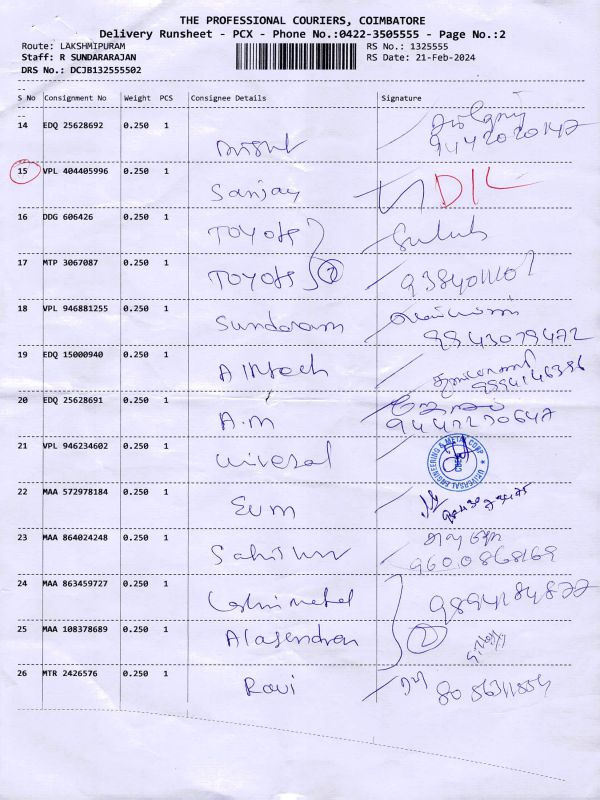 THE PROFESSIONAL COURIERS, COIMBATORE
Delivery Runsheet - PCX - Phone No.:0422-3505555 - Page No.:2
Route: LAKSHMIPURAM RS No.: 1325555
Staff: R SUNDARARAJAN RS Date: 21-Feb-2024
DRS No.: DCJB132555502
S No Consignment No Weight PCS Consignee Details Signature
14 EDQ 25628692 0.250 1
9442020142
15 VPL 404405996 0.250 1 Sanjay DIL
16 DDG 606426 0.250 1 TOYOTS
17 MTP 3067087 0.250 1 TOYOTS 2
18 VPL 946881255 0.250 1 Sundaram
9843079472
19 EDQ 15000940 0.250 1 A Intech
9894146396
20 EDQ 25628691 0.250 1 A.M
9442230647
21 VPL 946234602 0.250 1 Universal UNIVERSAL ENGINEERING & METAL CORP CBE
22 MAA 572978184 0.250 1 Eum
23 MAA 864024248 0.250 1
9600868169
24 MAA 863459727 0.250 1 9894184877
25 MAA 108378689 0.250 1 Alagendran 2
26 MTR 2426576 0.250 1 Ravi